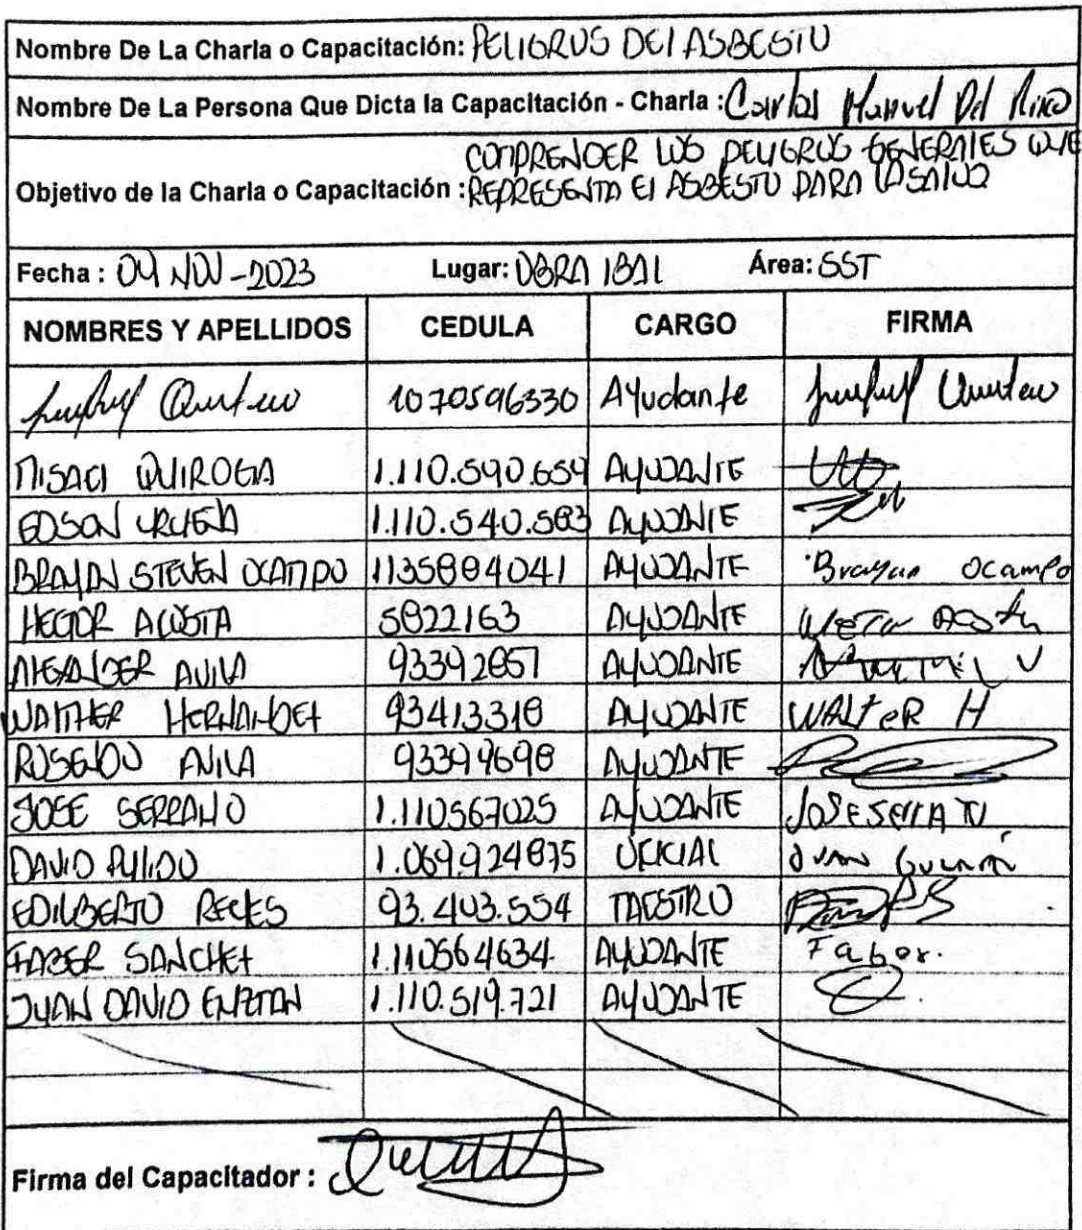 Nombre De La Charla o Capacitación: PELIGROS DEl ASBESTO
Nombre De La Persona Que Dicta la Capacitación - Charla : Carlos Manuel Del Rio
COMPRENDER LOS PELIGROS GENERALES QUE
Objetivo de la Charla o Capacitación : REPRESENTA El ASBESTO PARA LA SALUD
Fecha : 04 NOV - 2023 Lugar: OBRA IBAL Área: SST
NOMBRES Y APELLIDOS CEDULA CARGO FIRMA
Quintero 1070596330 Ayudante Quintero
MISAEl QUIROGA 1.110.590.659 AYUDANTE
EDSON URUEÑA 1.110.540.583 AYUDANTE
BRAYAN STEVEN OCAMPO 1135884041 AYUDANTE Brayan Ocampo
HECTOR ACOSTA 5822163 AYUDANTE Acosta
AlEXANDER AVILA 93392857 AYUDANTE
WALTHER HERNANDEZ 93413318 AYUDANTE WALTeR H
ROSENDO AVILA 93394698 AYUDANTE
JOSE SERRANO 1.110567025 AYUDANTE JOSE SERRANO
DAVID PULIDO 1.069.924875 OFICIAL
EDILBERTO REYES 93.403.554 MAESTRO
FABER SANCHEZ 1.110564634 AYUDANTE Faber.
JUAN DAVID 1.110.519.721 AYUDANTE
Firma del Capacitador :